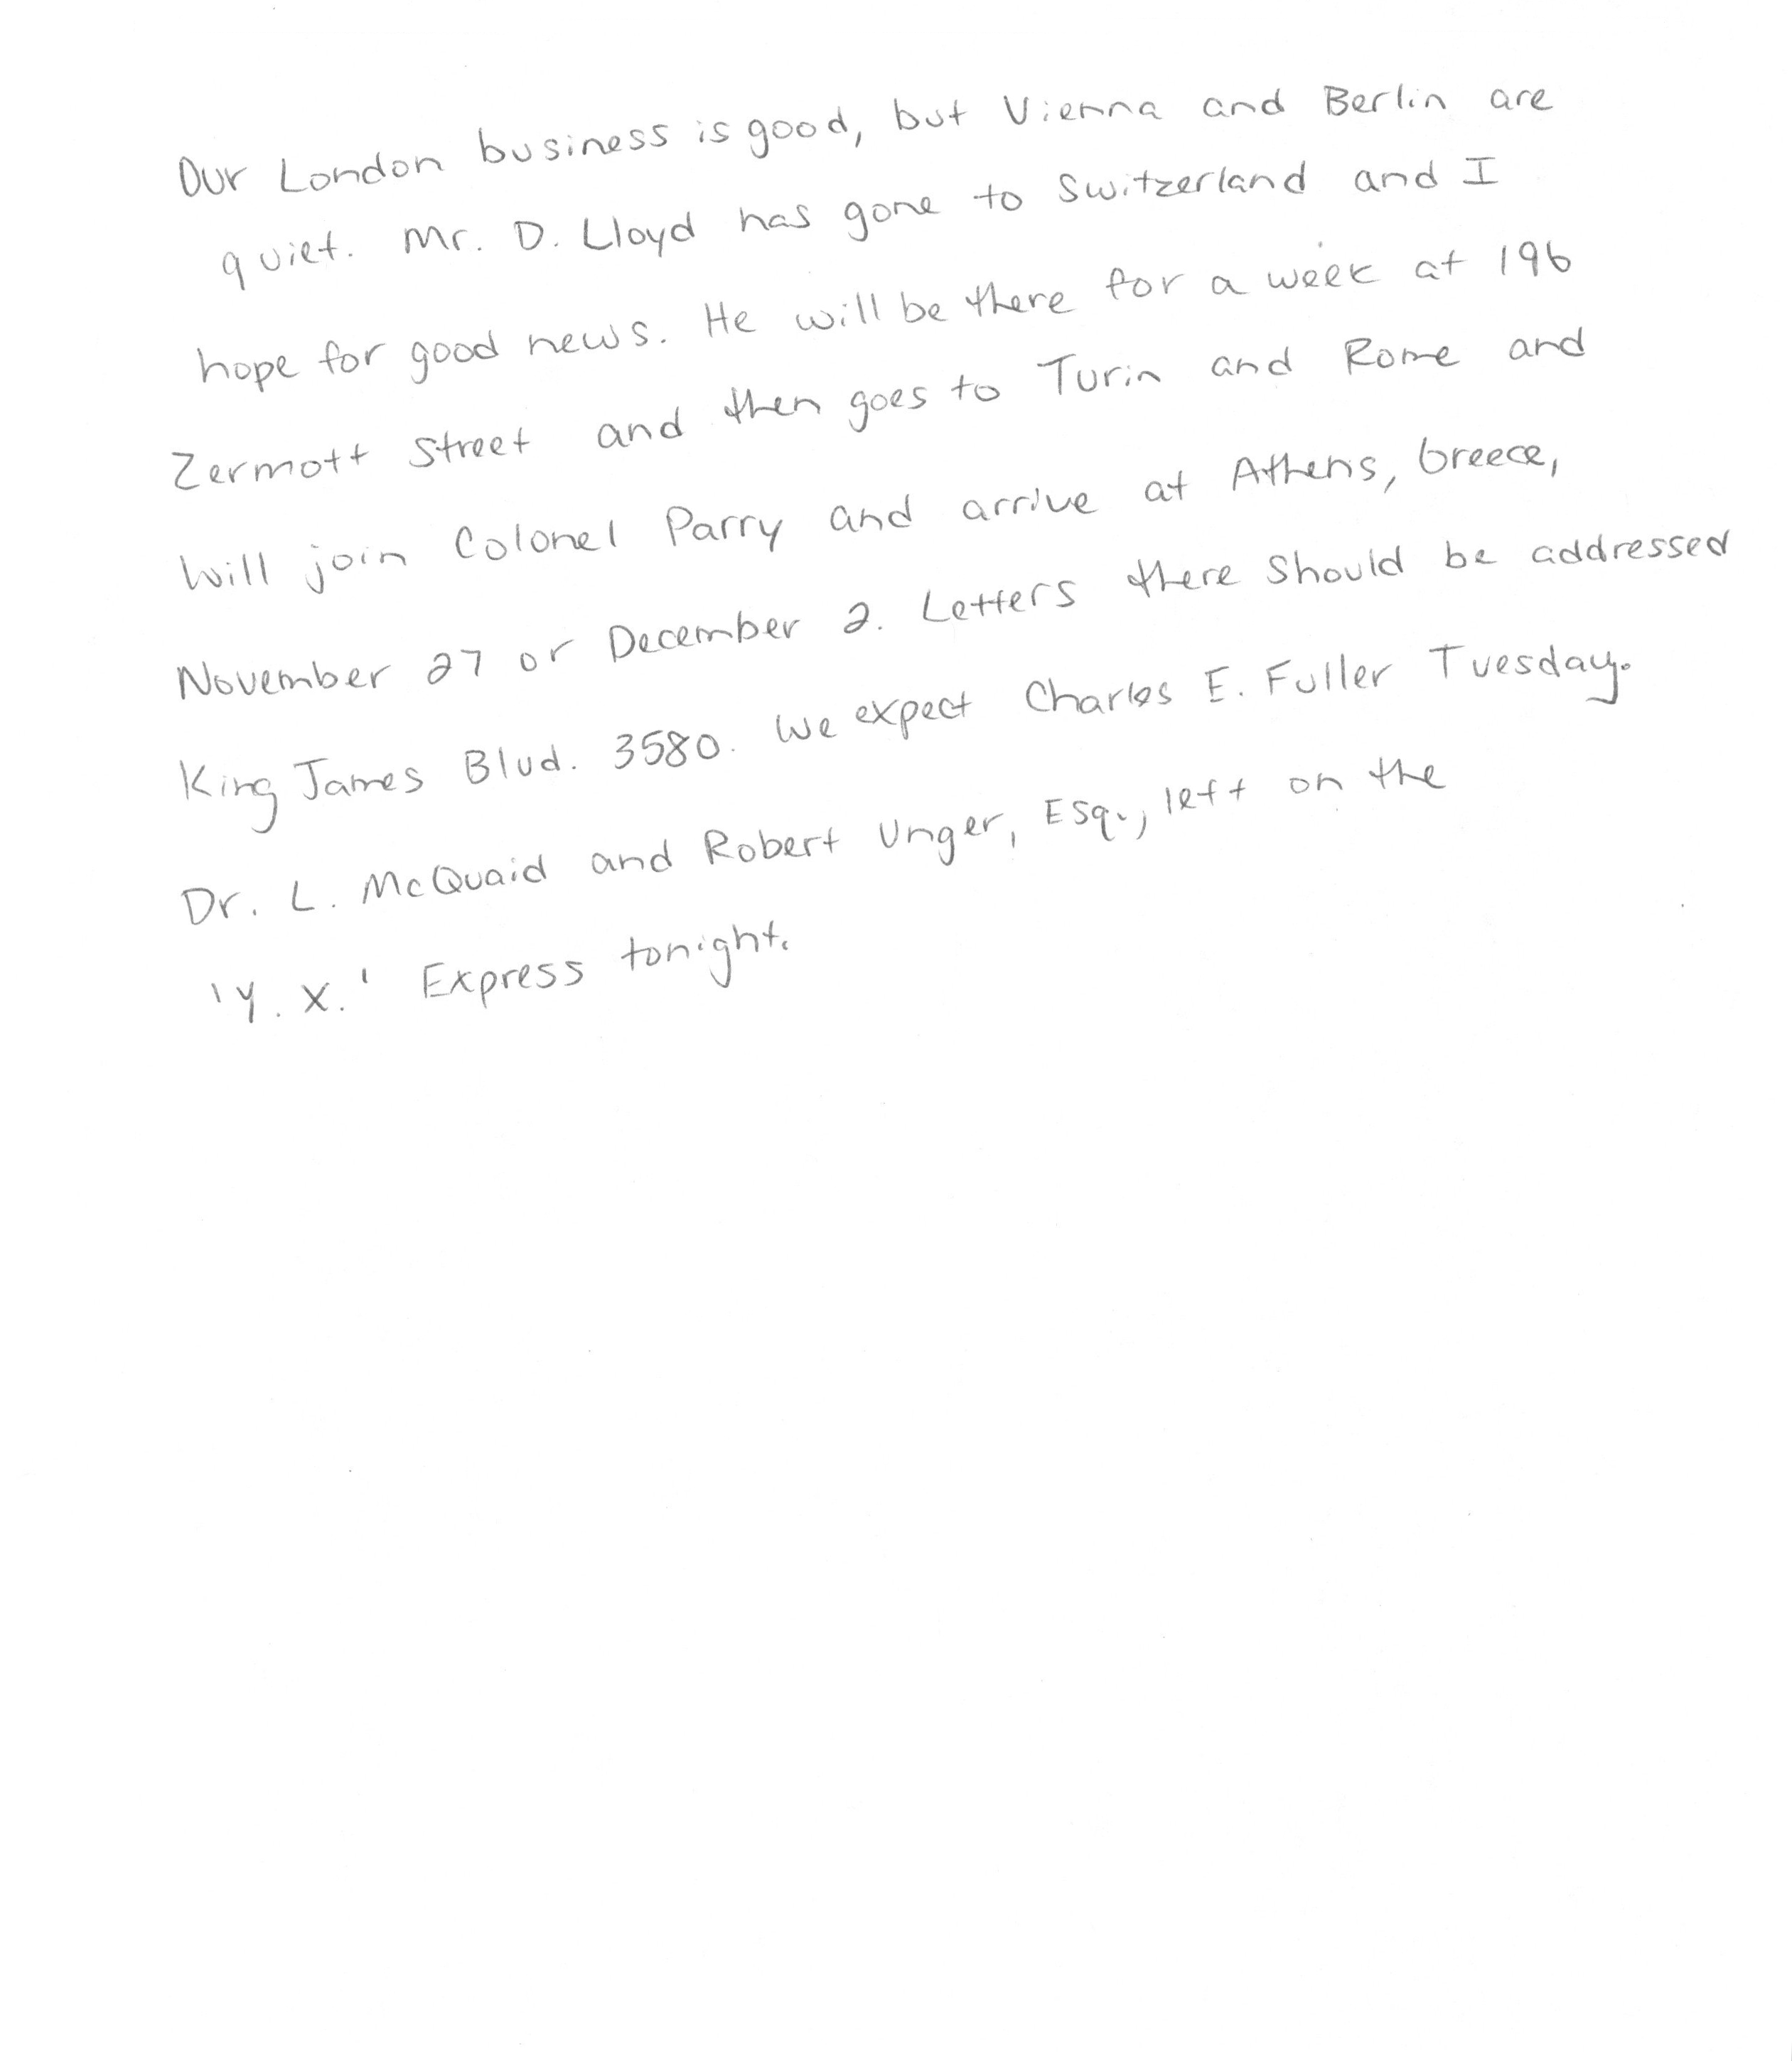 Our London business is good, but Vienna and Berlin are
quiet. Mr. D. Lloyd has gone to Switzerland and I
hope for good news. He will be there for a week at 196
Zermott Street and then goes to Turin and Rome and
will join Colonel Parry and arrive at Athens, Greece,
November 27 or December 2. Letters there should be addressed
King James Blvd. 3580. We expect Charles E. Fuller Tuesday.
Dr. L. McQuaid and Robert Unger, Esq., left on the
'Y. X.' Express tonight.